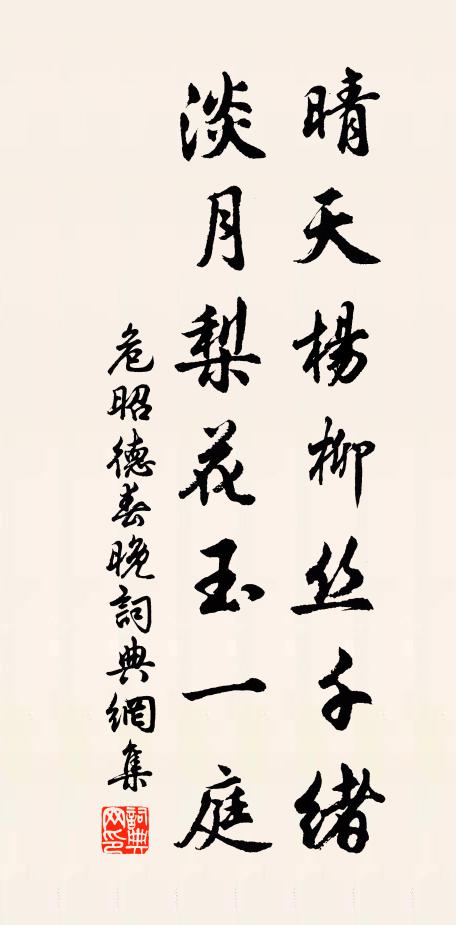 晴天楊柳丝千緒
淡月梨花玉一庭
危昭德春晚詞典網集
詞典网印